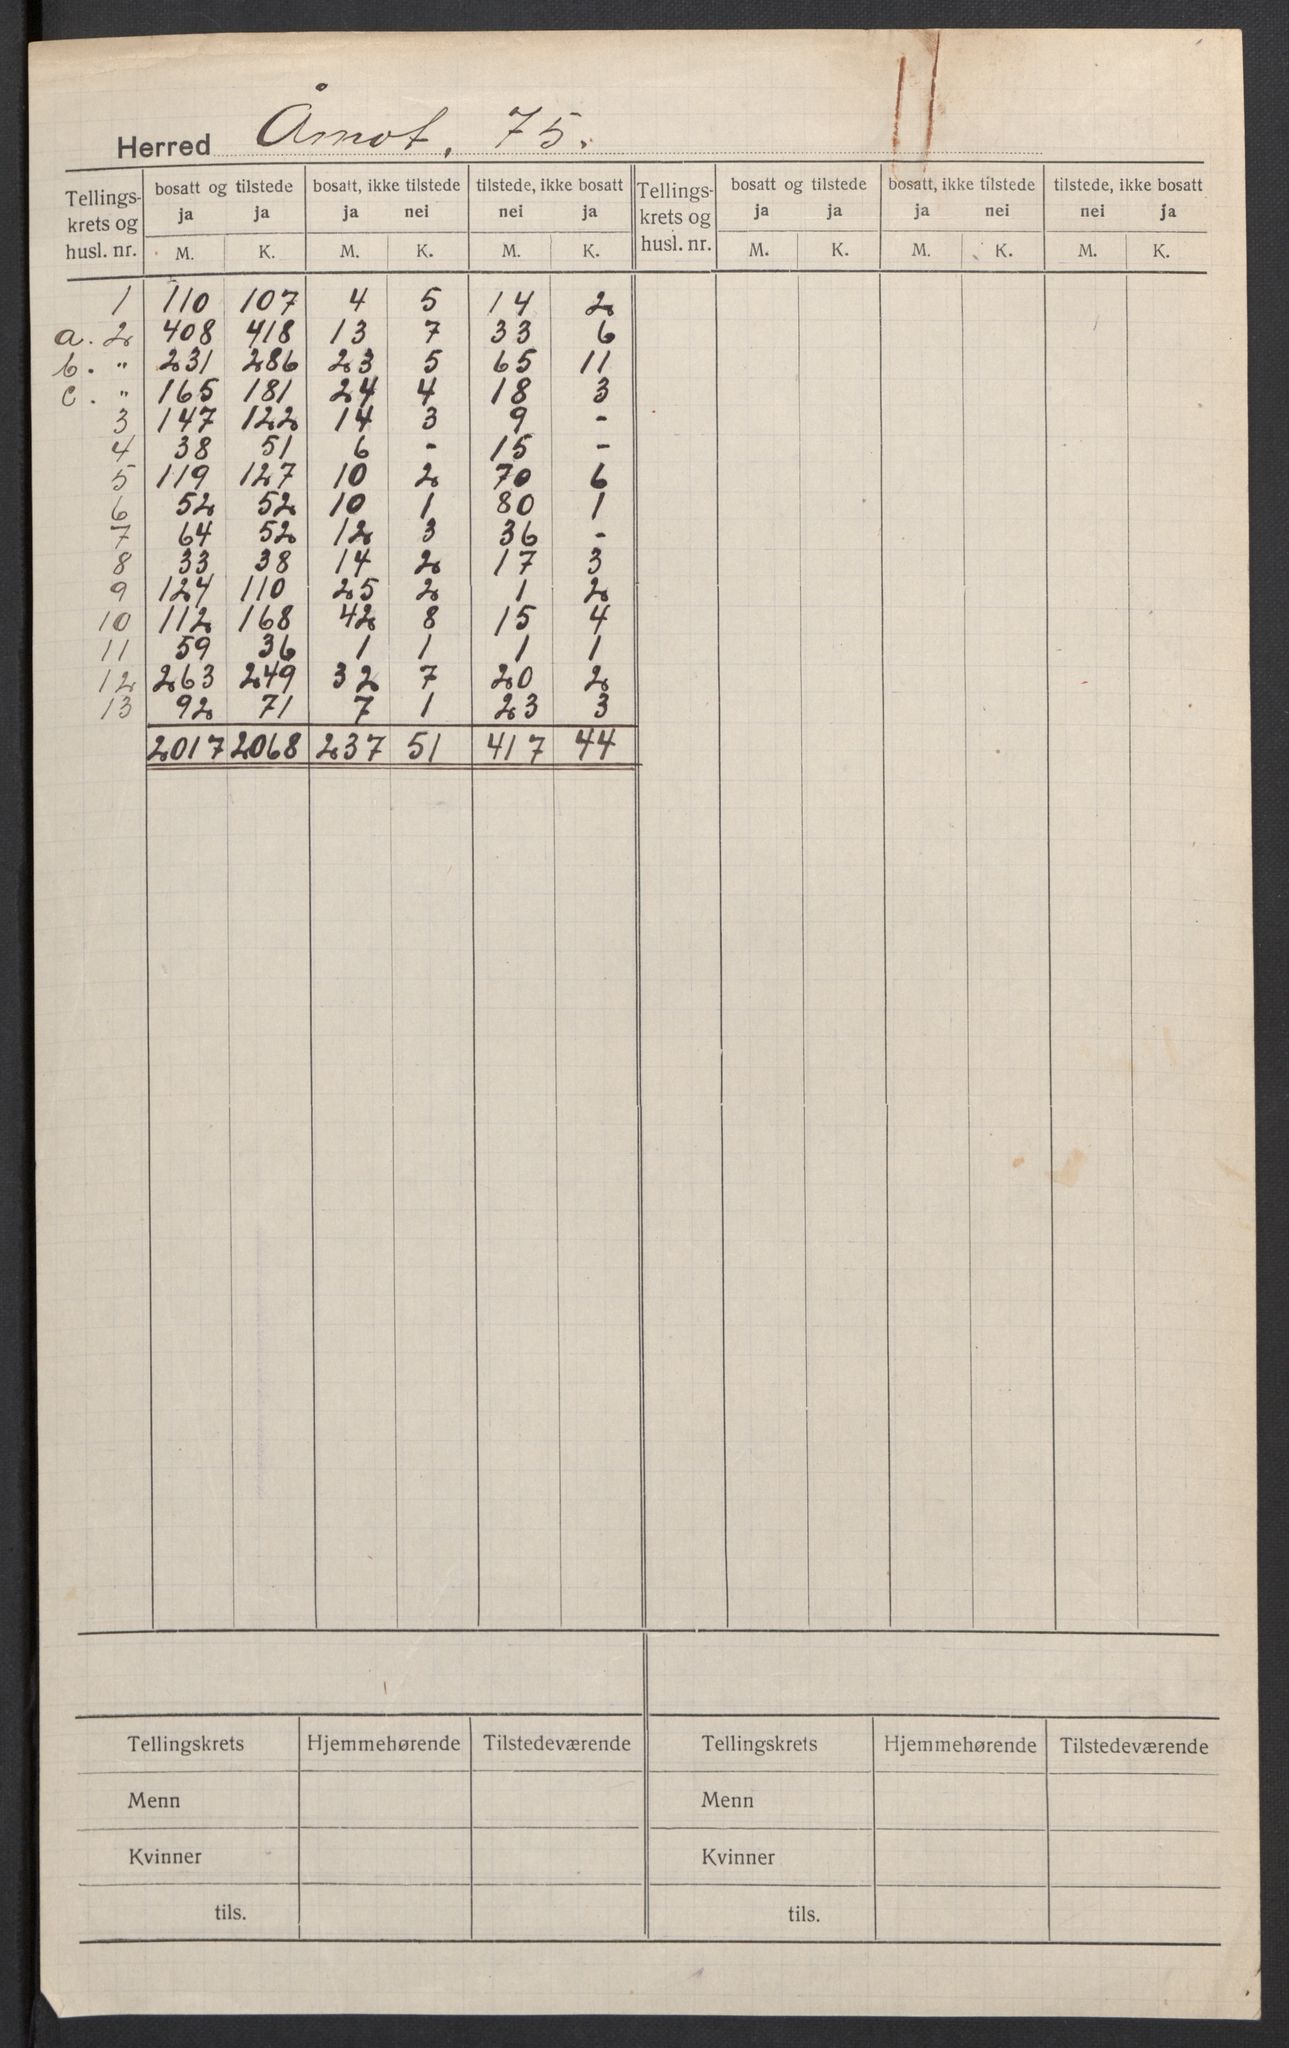 Herred Åmot. 75.
Tellings- krets og husl. nr. | bosatt og tilstede ja ja | bosatt, ikke tilstede ja nei | tilstede, ikke bosatt nei ja | Tellings- krets og husl. nr. | bosatt og tilstede ja ja | bosatt, ikke tilstede ja nei | tilstede, ikke bosatt nei ja
M. K. M. K. M. K. M. K. M. K. M. K.
1 110 107 4 5 14 2
a. 2 408 418 13 7 33 6
b. " 231 286 23 5 65 11
c. " 165 181 24 4 18 3
3 147 122 14 3 9 -
4 38 51 6 - 15 -
5 119 127 10 2 70 6
6 52 52 10 1 80 1
7 64 52 12 3 36 -
8 33 38 14 2 17 3
9 124 110 25 2 1 2
10 112 168 42 8 15 4
11 59 36 1 1 1 1
12 263 249 32 7 20 2
13 92 71 7 1 23 3
2017 2068 237 51 417 44
Tellingskrets Hjemmehørende Tilstedeværende Tellingskrets Hjemmehørende Tilstedeværende
Menn Menn
Kvinner Kvinner
tils. tils.